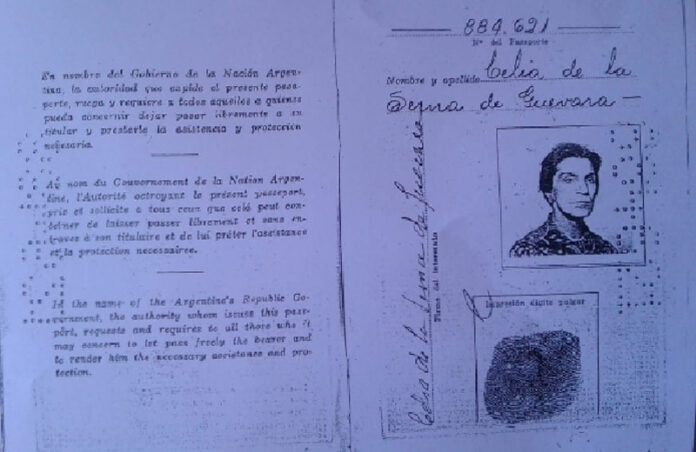 En nombre del Gobierno de la Nación Argen-
tina, la autoridad que expide el presente pasa-
porte, ruega y requiere a todos aquellos a quienes
pueda concernir dejar pasar libremente a su
titular y prestarle la asistencia y protección
necesaria.
Au nom du Gouvernement de la Nation Argen-
tine, l'Autorité octroyant le présent passeport,
prie et sollicite a tous ceux que celà peut con-
cerner de laisser passer librement et sans en-
traves à son titulaire et de lui prêter l'assistance
et la protection necessaires.
In the name of the Argentine's Republic Go-
vernment, the authority whom issues this pass-
port, requests and requires to all those who it
may concern to let pass freely the bearer and
to render him the necessary assistance and pro-
tection.
884.621
Nº del Pasaporte
Nombre y apellido Celia de la
Serna de Guevara
Celia de la Serna de Guevara
Firma del interesado
Impresión dígito pulgar